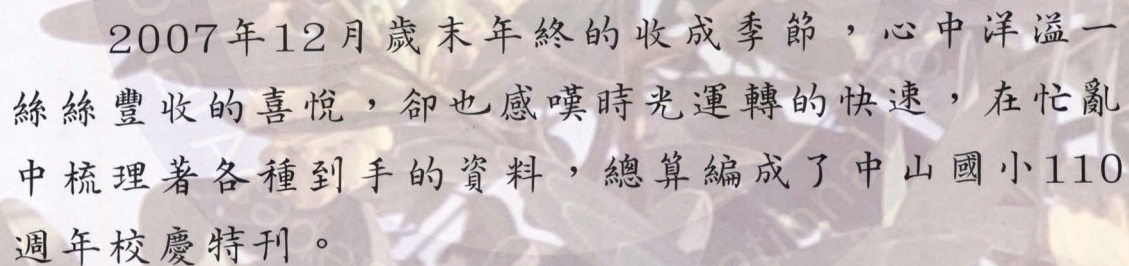 2007年12月歲末年終的收成季節，心中洋溢一
絲絲豐收的喜悅，卻也感嘆時光運轉的快速，在忙亂
中梳理著各種到手的資料，總算編成了中山國小110
週年校慶特刊。